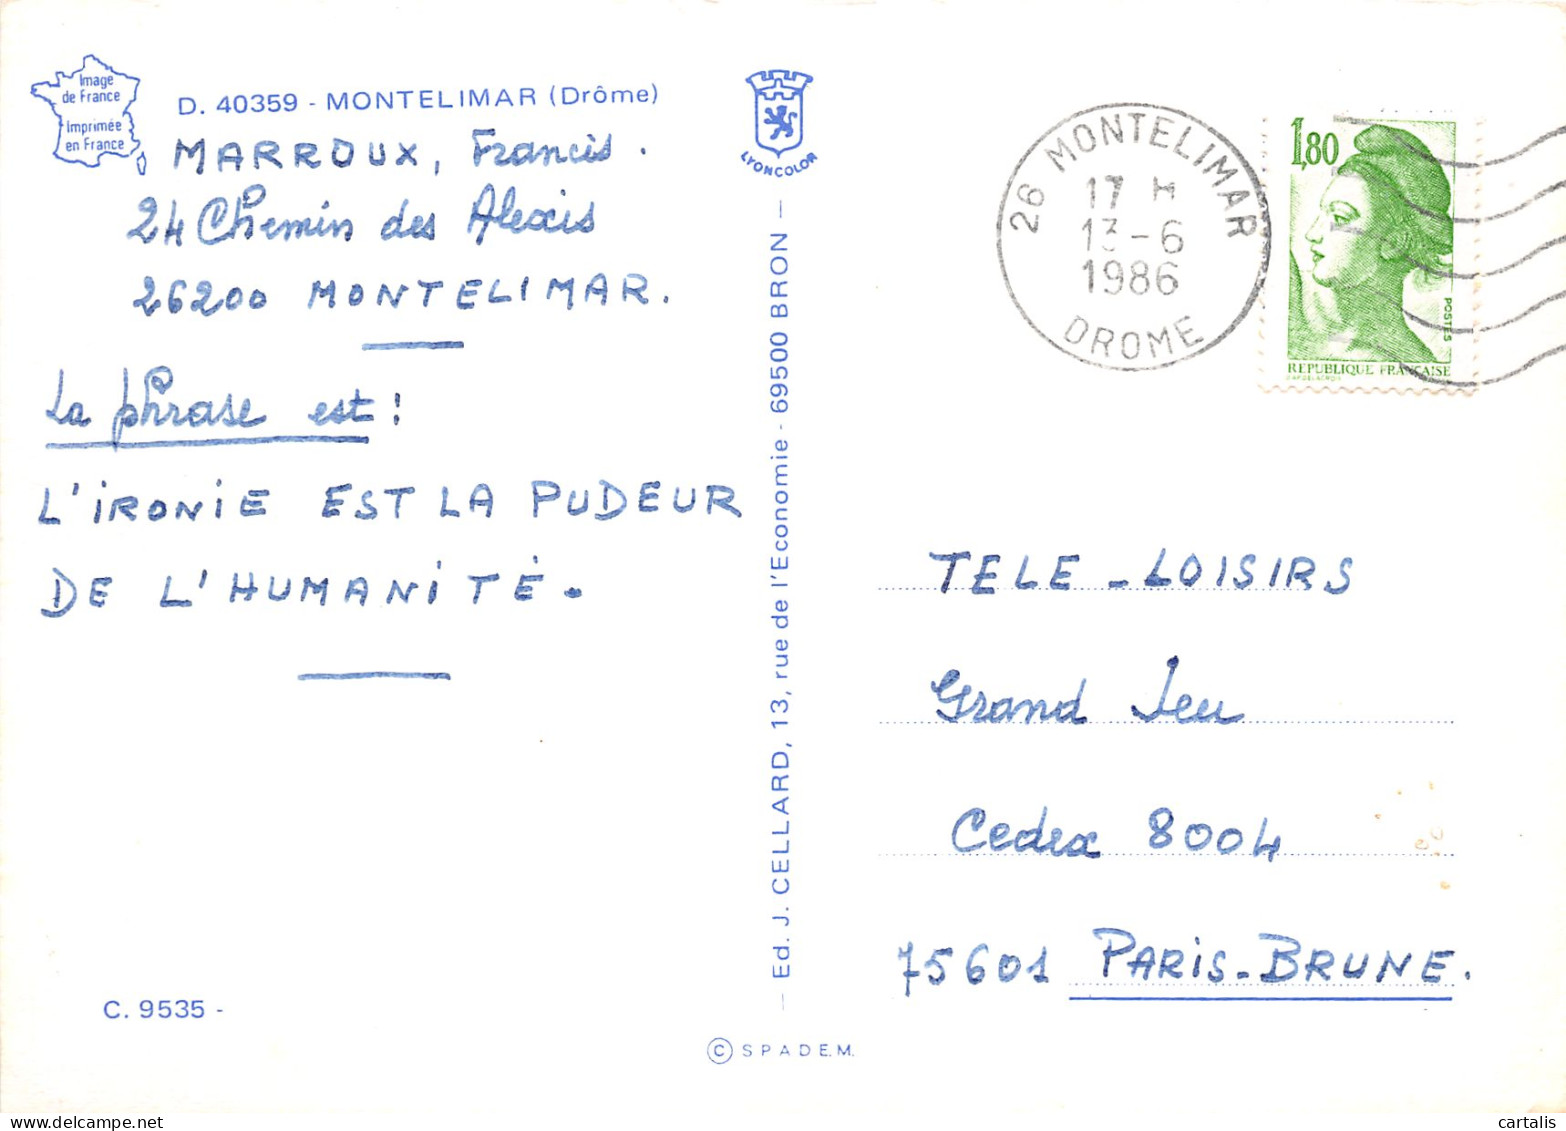 Image
de France
Imprimée
en France
D. 40359 - MONTELIMAR (Drôme)
MARROUX, Francis.
24 Chemin des Alexis
26200 MONTELIMAR.
La phrase est :
L'IRONIE EST LA PUDEUR
DE L'HUMANITÉ.
C. 9535 -
LYONCOLOR
Ed. J. CELLARD, 13, rue de l'Economie - 69500 BRON
© S P A D E.M.
26 MONTELIMAR
17 H
13-6
1986
DROME
1,80
POSTES
REPUBLIQUE FRANÇAISE
TELE-LOISIRS
Grand Jeu
Cedex 8004
75601 PARIS-BRUNE.
cartalis